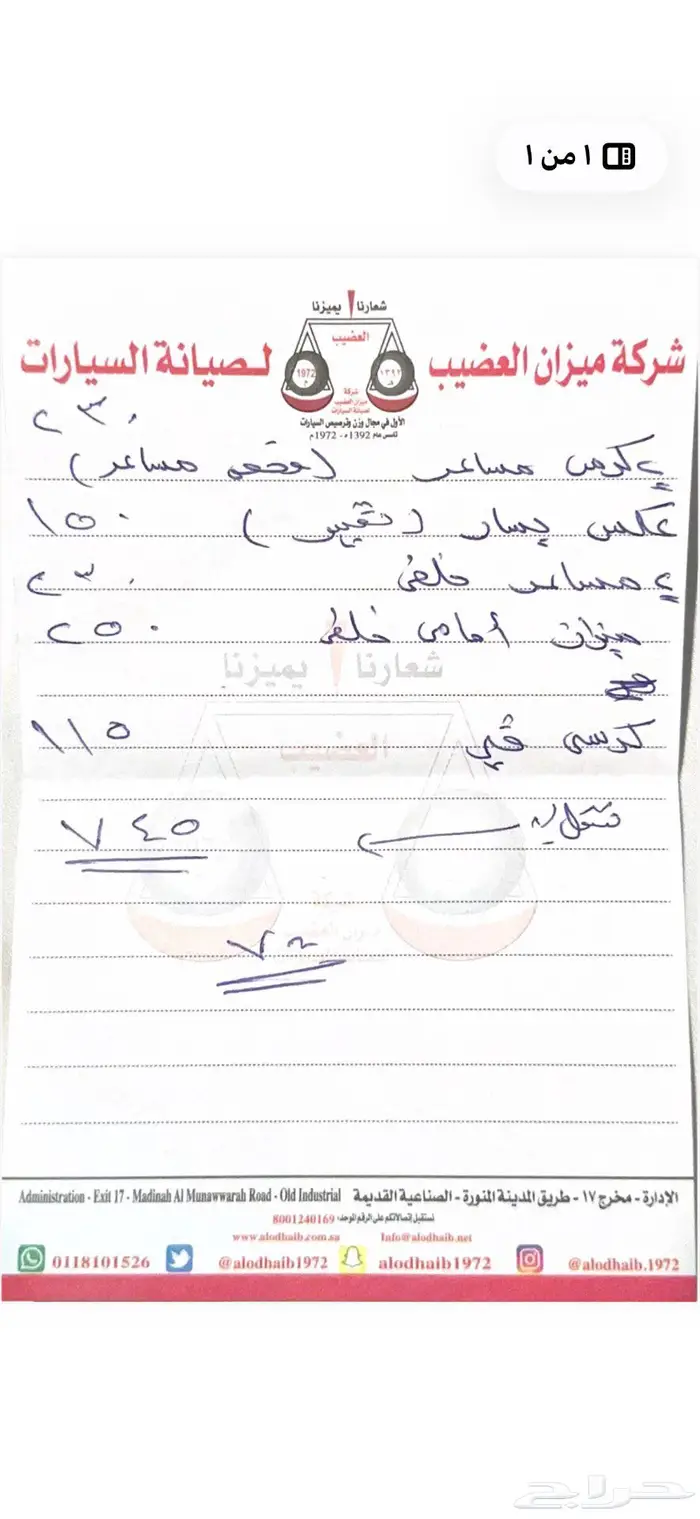 ١ من ١
شعارنا يميزنا
العضيب
شركة ميزان العضيب لـصيانة السيارات
1972 م ١٣٩٢ هـ
شركة
ميزان العضيب
لصيانة السيارات
الأول في مجال وزن وترصيص السيارات
تأسس عام 1392هـ - 1972م
٢٣٠
٢ كرسي مساعد ( مساعد)
عكس يسار (تغيير) ١٥٠
٢ مساعد خلفي ٢٣٠
ميزان أمامي خلفي ٢٥٠
شعارنا يميزنا
كرسي قير ١١٥
العضيب
٧٤٥
الإدارة - مخرج ١٧ - طريق المدينة المنورة - الصناعية القديمة
Administration - Exit 17 - Madinah Al Munawwarah Road - Old Industrial
نستقبل إتصالاتكم على الرقم الموحد: 8001240169
www.alodhaib.com.sa Info@alodhaib.net
0118101526 @alodhaib1972 alodhaib1972 @alodhaib.1972
حراج